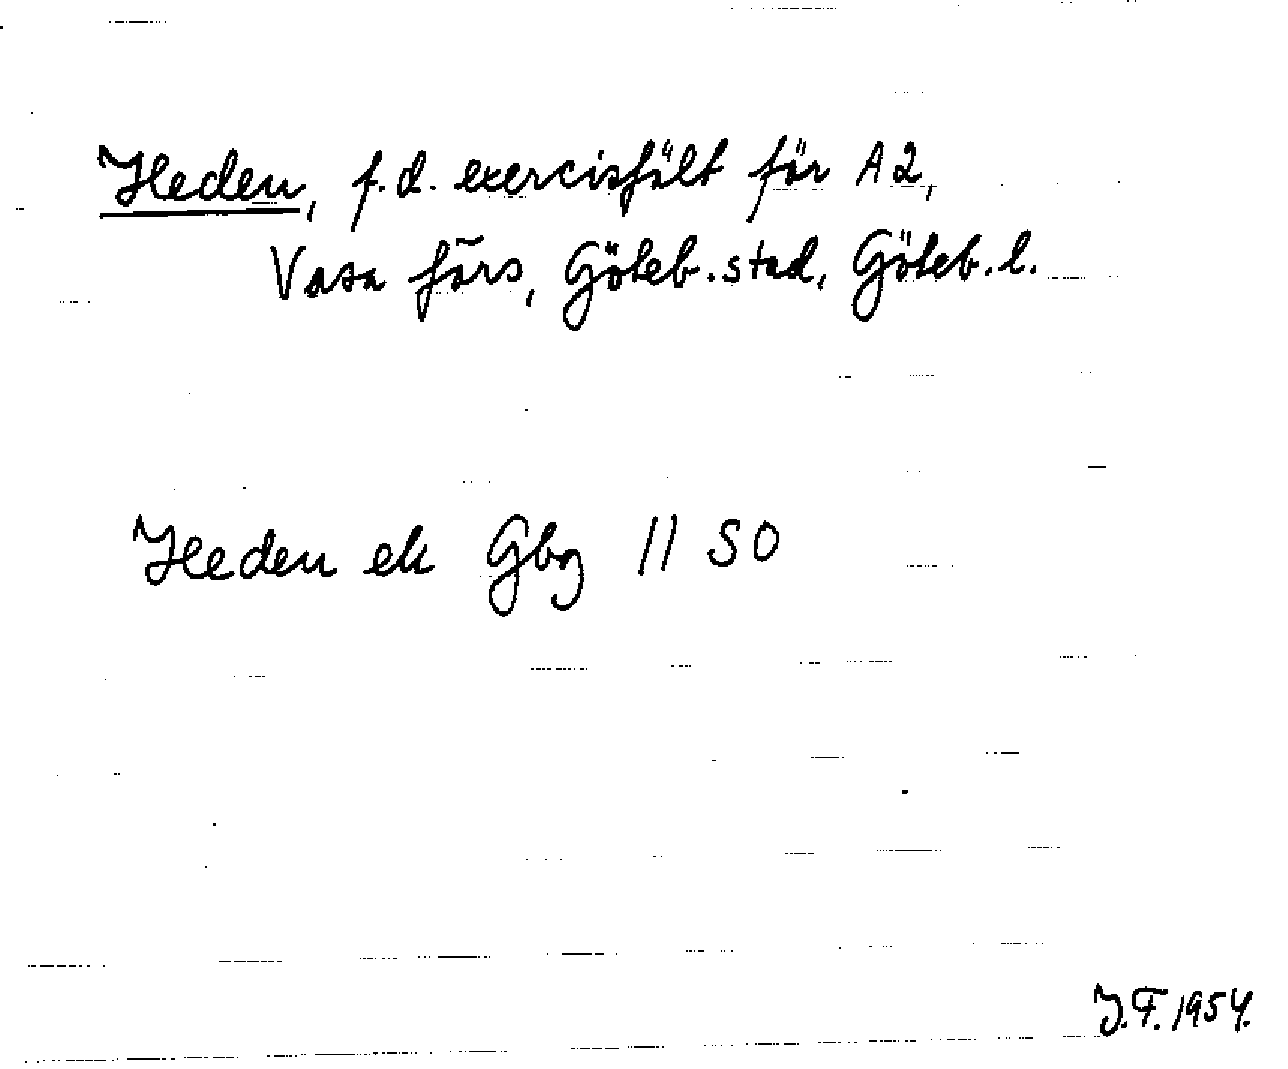 Heden, f.d. exercisfält för A2,
Vasa förs, Göteb. stad, Göteb. l.
Heden ek Gbg 11 SO
J.F. 1954.